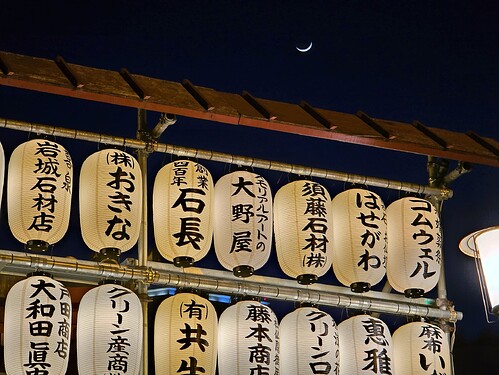 岩城石材店
(株)おきな
創業
四百年
石長
メモリアルアートの
大野屋
須藤石材(株)
はせがわ
ゴムウェル
戸田商店
大和田眞
クリーン産商
(有)共生
藤本商店
クリーン
恵雅
麻布い